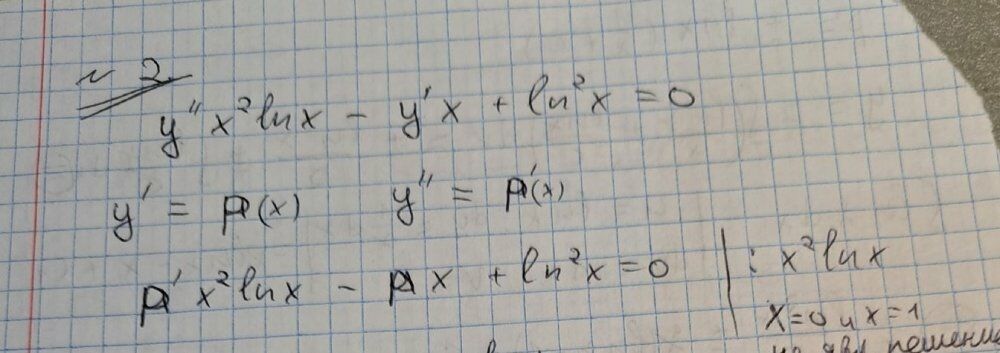 № 2
y'' x² ln x − y' x + ln² x = 0
y' = p(x) y'' = p'(x)
p' x² ln x − p x + ln² x = 0 | : x² ln x
x = 0 и x = 1